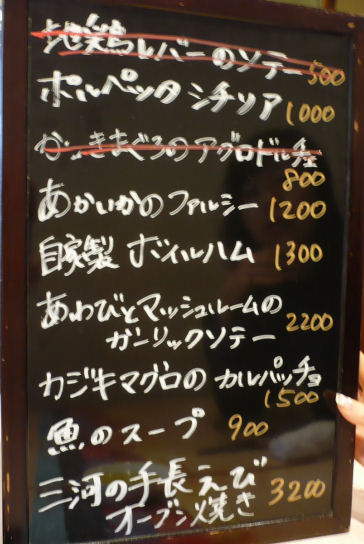 地鶏レバーのソテー 500
ポルペッタ シチリア 1000
かじきまぐろのアグロドルチェ
800
あかいかのファルシー 1200
自家製 ボイルハム 1300
あわびとマッシュルームの
ガーリックソテー 2200
カジキマグロの カルパッチョ
1500
魚のスープ 900
三河の手長えび 3200
オーブン焼き